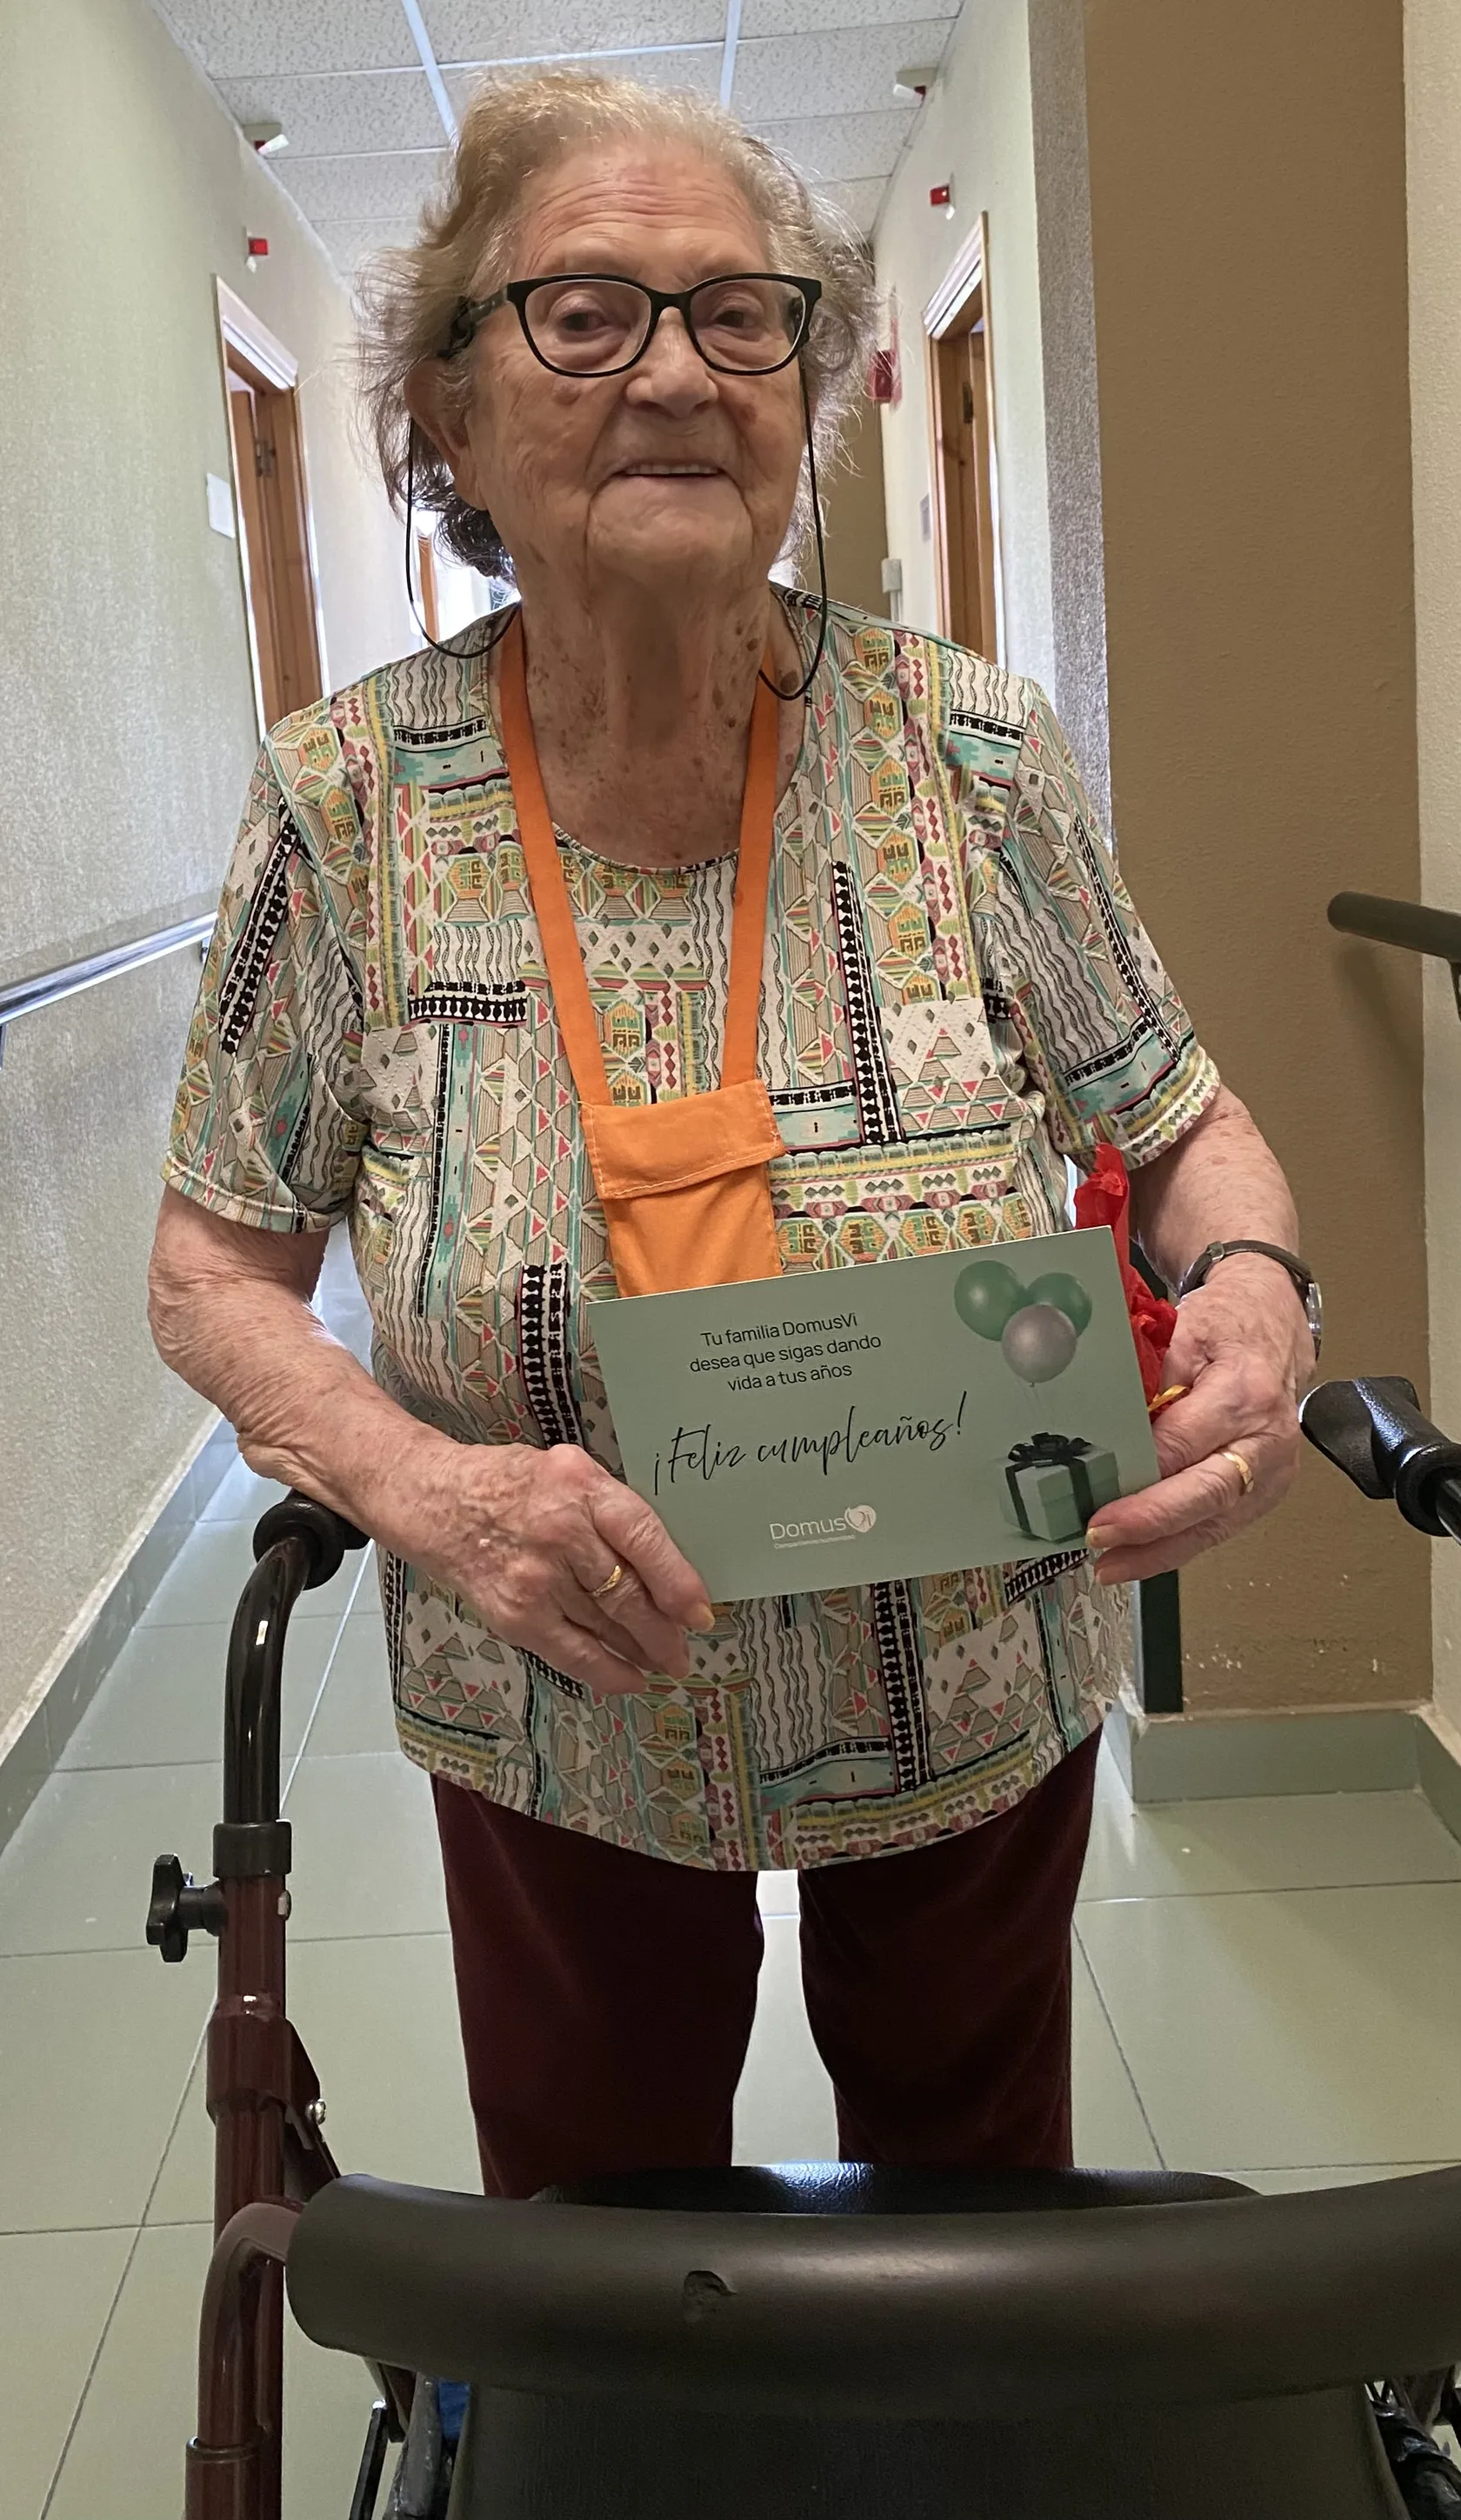 Tu familia DomusVi
desea que sigas dando
vida a tus años
¡Feliz cumpleaños!
DomusVi